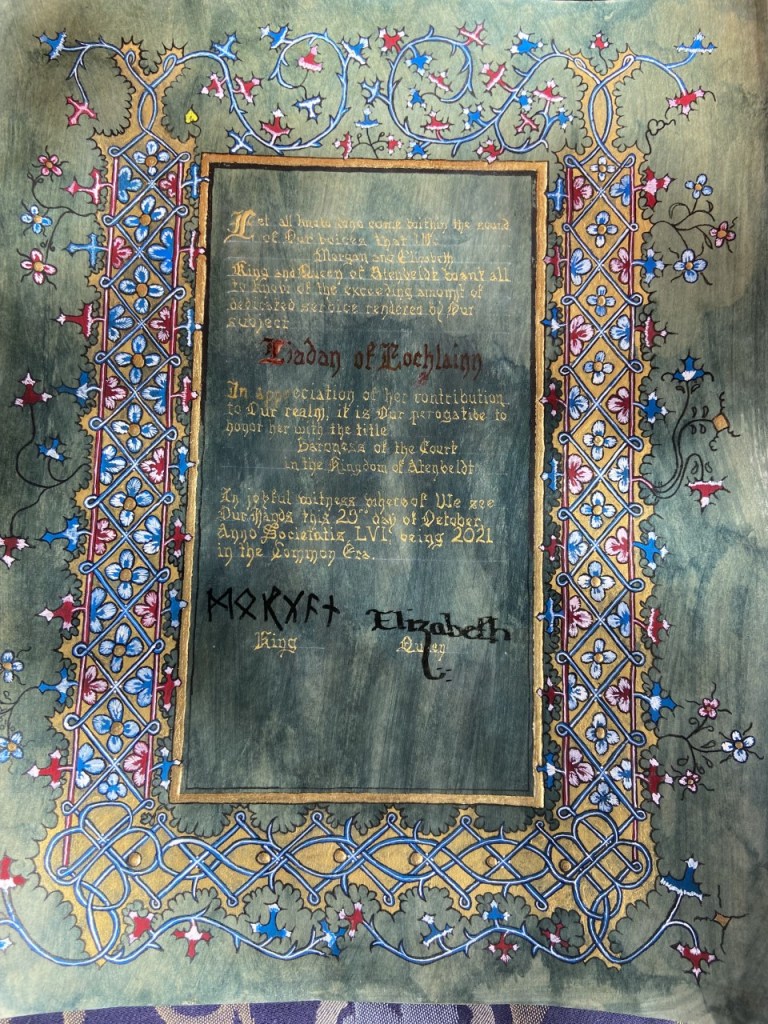 Let all unto who come within the sound
of Our voices that We
Morgan and Elizabeth
King and Queen of Atenveldt want all
to know of the exceeding amount of
dedicated service rendered by Our
subject
Liadan of Lochlainn
In appreciation of her contribution
to Our realm, it is Our perogative to
honor her with the title
Baroness of the Court
in the Kingdom of Atenveldt
In joyful witness whereof We set
Our hands this 20th day of October,
Anno Societatis LVI being 2021
in the Common Era.
ᛞᛟᚱᚷᚨᚾ Elizabeth
King Queen